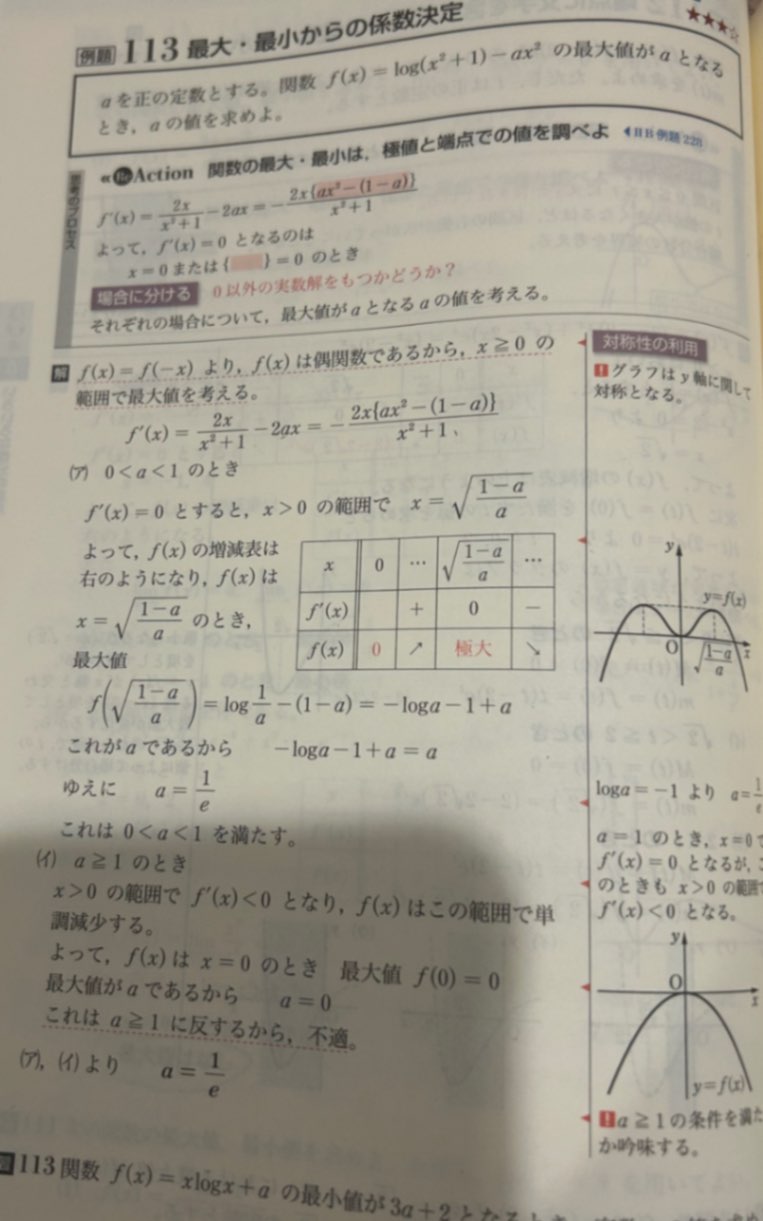 例題 113 最大・最小からの係数決定 ★★★☆
aを正の定数とする。関数 f(x) = log(x²+1) − ax² の最大値がaとなる
とき，aの値を求めよ。
思考のプロセス
≪Re Action 関数の最大・最小は，極値と端点での値を調べよ ◀IIB例題228
f′(x) = 2x/(x²+1) − 2ax = −2x{ax²−(1−a)}/(x²+1)
よって，f′(x)=0 となるのは
x=0 または{ }=0 のとき
場合に分ける 0以外の実数解をもつかどうか？
それぞれの場合について，最大値がaとなるaの値を考える。
解 f(x)=f(−x) より，f(x)は偶関数であるから，x≧0 の
範囲で最大値を考える。
f′(x) = 2x/(x²+1) − 2ax = −2x{ax²−(1−a)}/(x²+1)
(ア) 0<a<1 のとき
f′(x)=0 とすると，x>0 の範囲で x=√((1−a)/a)
よって，f(x)の増減表は
右のようになり，f(x)は
x=√((1−a)/a) のとき，
最大値
x 0 … √((1−a)/a) …
f′(x) + 0 −
f(x) 0 ↗ 極大 ↘
f(√((1−a)/a)) = log 1/a −(1−a) = −loga−1+a
これがaであるから −loga−1+a=a
ゆえに a=1/e
これは 0<a<1 を満たす。
(イ) a≧1 のとき
x>0 の範囲で f′(x)<0 となり，f(x)はこの範囲で単
調減少する。
よって，f(x)は x=0 のとき 最大値 f(0)=0
最大値がaであるから a=0
これは a≧1 に反するから，不適。
(ア)，(イ)より a=1/e
対称性の利用
!グラフはy軸に関して
対称となる。
y
y=f(x)
O
√((1−a)/a)
x
loga=−1 より a=1/e
a=1 のとき，x=0で
f′(x)=0 となるが，こ
のときも x>0 の範囲で
f′(x)<0 となる。
y
O
x
y=f(x)
!a≧1の条件を満た
か吟味する。
113 関数 f(x)=xlogx+a の最小値が3a+2となるとき，